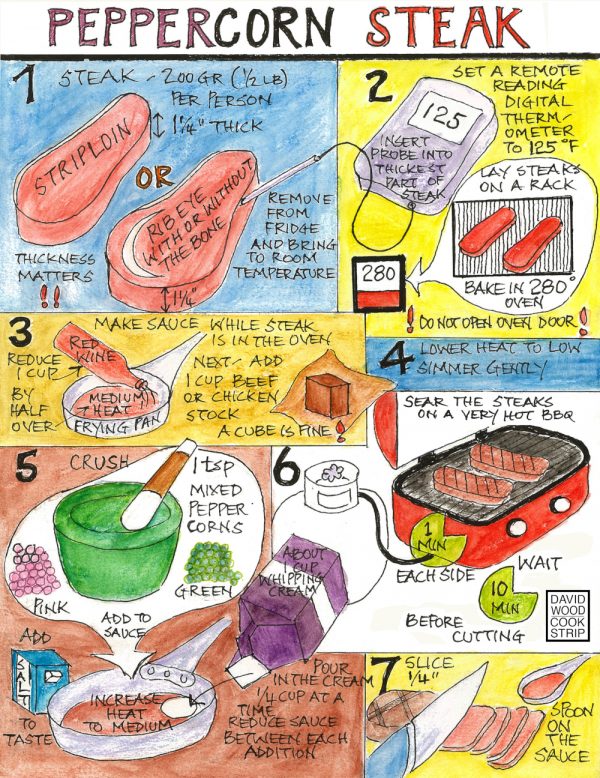 PEPPERCORN STEAK
1
STEAK ~ 200GR (½LB)
PER PERSON
1¼" THICK
STRIPLOIN
OR
RIB EYE
WITH OR WITHOUT
THE BONE
REMOVE
FROM
FRIDGE
AND BRING
TO ROOM
TEMPERATURE
THICKNESS
MATTERS
!!
1¼"
2
SET A REMOTE
READING
DIGITAL
THERM~
OMETER
TO 125°F
125
INSERT
PROBE INTO
THICKEST
PART OF
STEAK
LAY STEAKS
ON A RACK
280
BAKE IN 280°
OVEN
! DO NOT OPEN OVEN DOOR !
3
MAKE SAUCE WHILE STEAK
IS IN THE OVEN
RED
WINE
REDUCE
1 CUP
BY
HALF
OVER
MEDIUM
HEAT
FRYING PAN
NEXT~ ADD
1 CUP BEEF
OR CHICKEN
STOCK
A CUBE IS FINE !
4
LOWER HEAT TO LOW
SIMMER GENTLY
SEAR THE STEAKS
ON A VERY HOT BBQ
5
CRUSH
1 tsp
MIXED
PEPPER
CORNS
PINK
GREEN
ADD TO
SAUCE
ADD
SALT
TO
TASTE
INCREASE
HEAT
TO MEDIUM
6
1
MIN
EACH SIDE
WAIT
10
MIN
BEFORE
CUTTING
DAVID
WOOD
COOK
STRIP
ABOUT
CUP
WHIPPING
CREAM
POUR
IN THE CREAM
¼ CUP AT A
TIME
REDUCE SAUCE
BETWEEN EACH
ADDITION
7
SLICE
¼"
SPOON
ON
THE
SAUCE